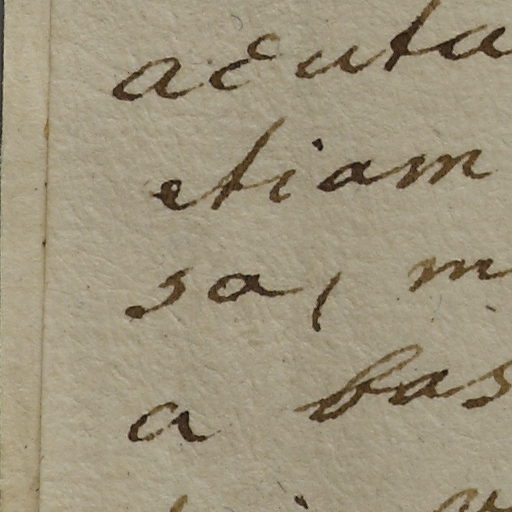 acuta
etiam
sa, m
a bas